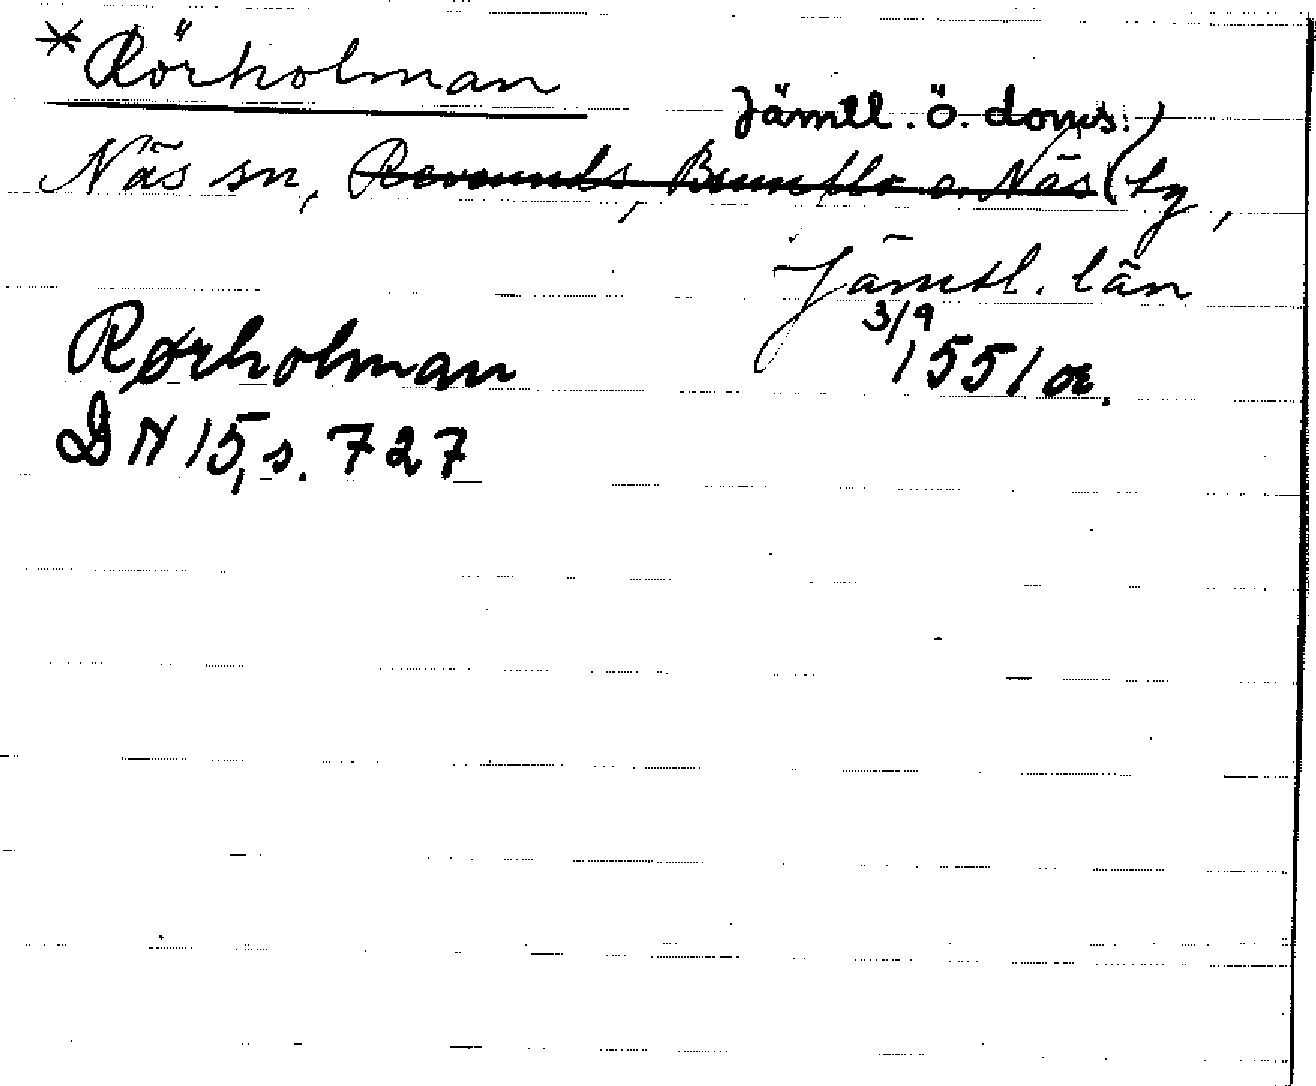 *Rörholman
Jämtl. ö. doms.)
Näs sn, Revsunds, Brunflo o. Näs (tg,
Jämtl. län
Rørholman 3/9 1551 or.
DN 15, s. 727